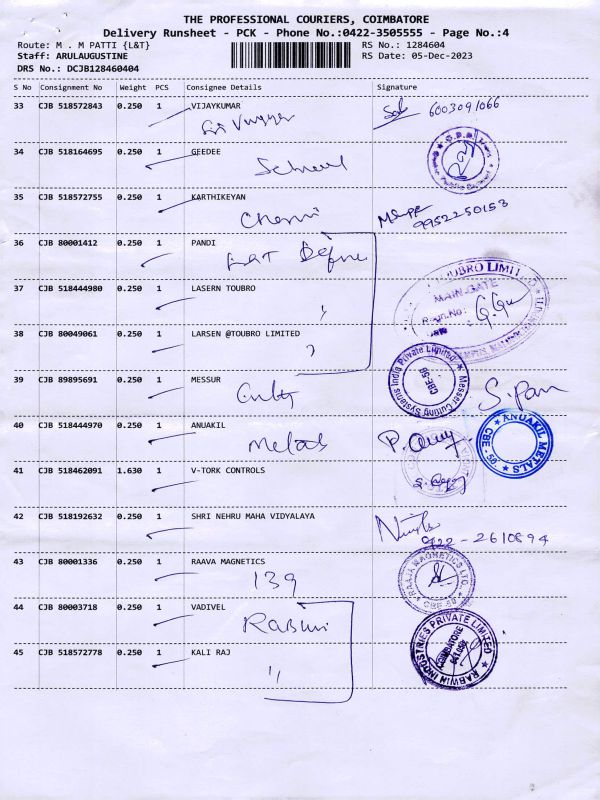 THE PROFESSIONAL COURIERS, COIMBATORE
Delivery Runsheet - PCK - Phone No.:0422-3505555 - Page No.:4
Route: M . M PATTI {L&T} RS No.: 1284604
Staff: ARULAUGUSTINE RS Date: 05-Dec-2023
DRS No.: DCJB128460404
S No Consignment No Weight PCS Consignee Details Signature
33 CJB 518572843 0.250 1 VIJAYKUMAR 6003091066
34 CJB 518164695 0.250 1 GEEDEE
School
35 CJB 518572755 0.250 1 KARTHIKEYAN
9952250153
36 CJB 80001412 0.250 1 PANDI
37 CJB 518444980 0.250 1 LASERN TOUBRO
TOUBRO LIMITED
MAIN GATE
Regn.No:
38 CJB 80049061 0.250 1 LARSEN @TOUBRO LIMITED
39 CJB 89895691 0.250 1 MESSUR
Messer Cutting Systems India Private Limited
CBE-50
40 CJB 518444970 0.250 1 ANUAKIL
Metals
ANUAKIL METALS
CBE - 50.
41 CJB 518462091 1.630 1 V-TORK CONTROLS
42 CJB 518192632 0.250 1 SHRI NEHRU MAHA VIDYALAYA
0422-2610894
43 CJB 80001336 0.250 1 RAAVA MAGNETICS
139
RAAJA MAGNETICS LTD.
44 CJB 80003718 0.250 1 VADIVEL
Rabwin
RABWIN INDUSTRIES PRIVATE LIMITED
COIMBATORE
641 062
45 CJB 518572778 0.250 1 KALI RAJ